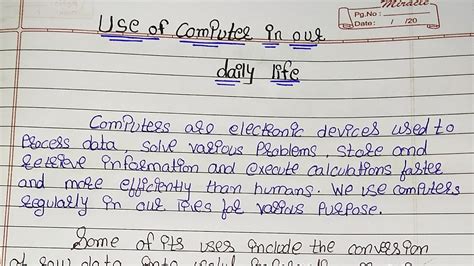 Miracle
Pg.No :
Date : / /20
Use of Computer in our
daily life
Computers are electronic devices used to
Process data, solve various Problems, store and
retrieve information and execute calculations faster
and more efficiently than humans. We use computers
regularly in our lives for various Purpose.
Some of its uses include the conversion
of raw data into useful